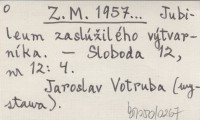 o Z. M. 1957... Jubi-
leum zaslúžilého výtvar-
níka. – Sloboda 12,
nr 12: 4.
Jaroslav Votruba (wy-
stawa).